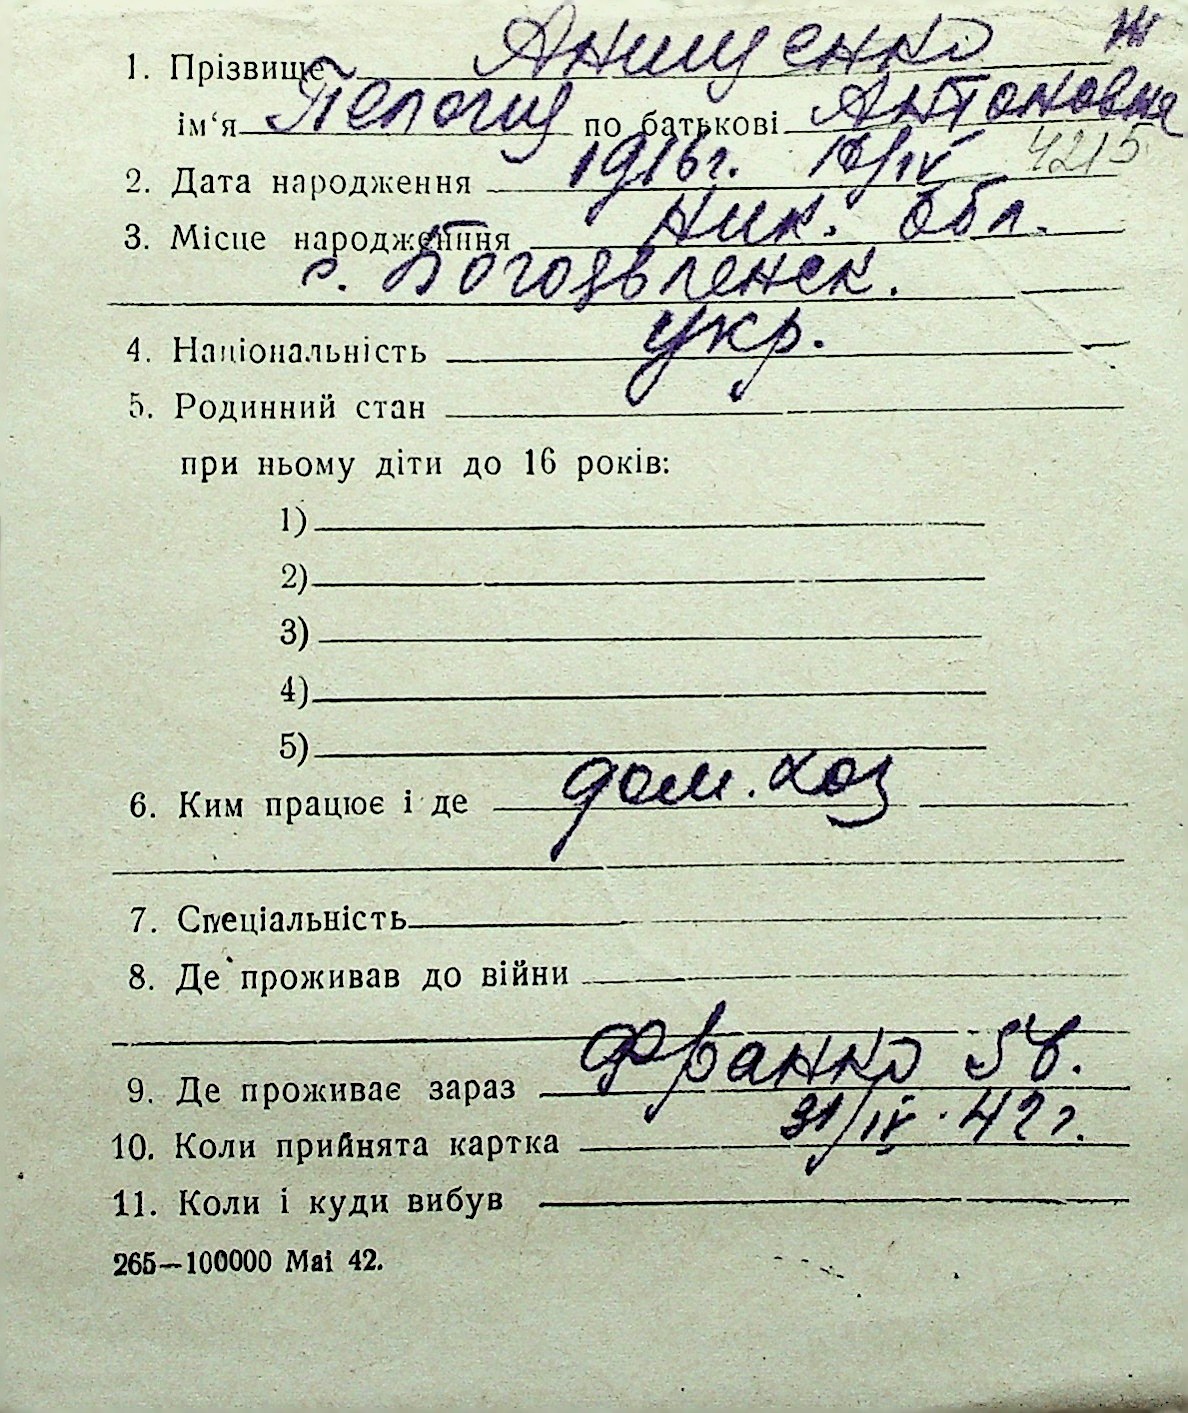 1. Прізвище Анищенко Ж
ім‘я Пелагия по батькові Антоновна
2. Дата народження 1916г. /IV 4215
3. Місце народження Ник. обл.
с. Богоявленск.
4. Національність укр.
5. Родинний стан
при ньому діти до 16 років:
1)
2)
3)
4)
5)
6. Ким працює і де дом. хоз
7. Спеціальність
8. Де проживав до війни
9. Де проживає зараз Франко
10. Коли прийнята картка 42г.
11. Коли і куди вибув
265—100000 Mai 42.